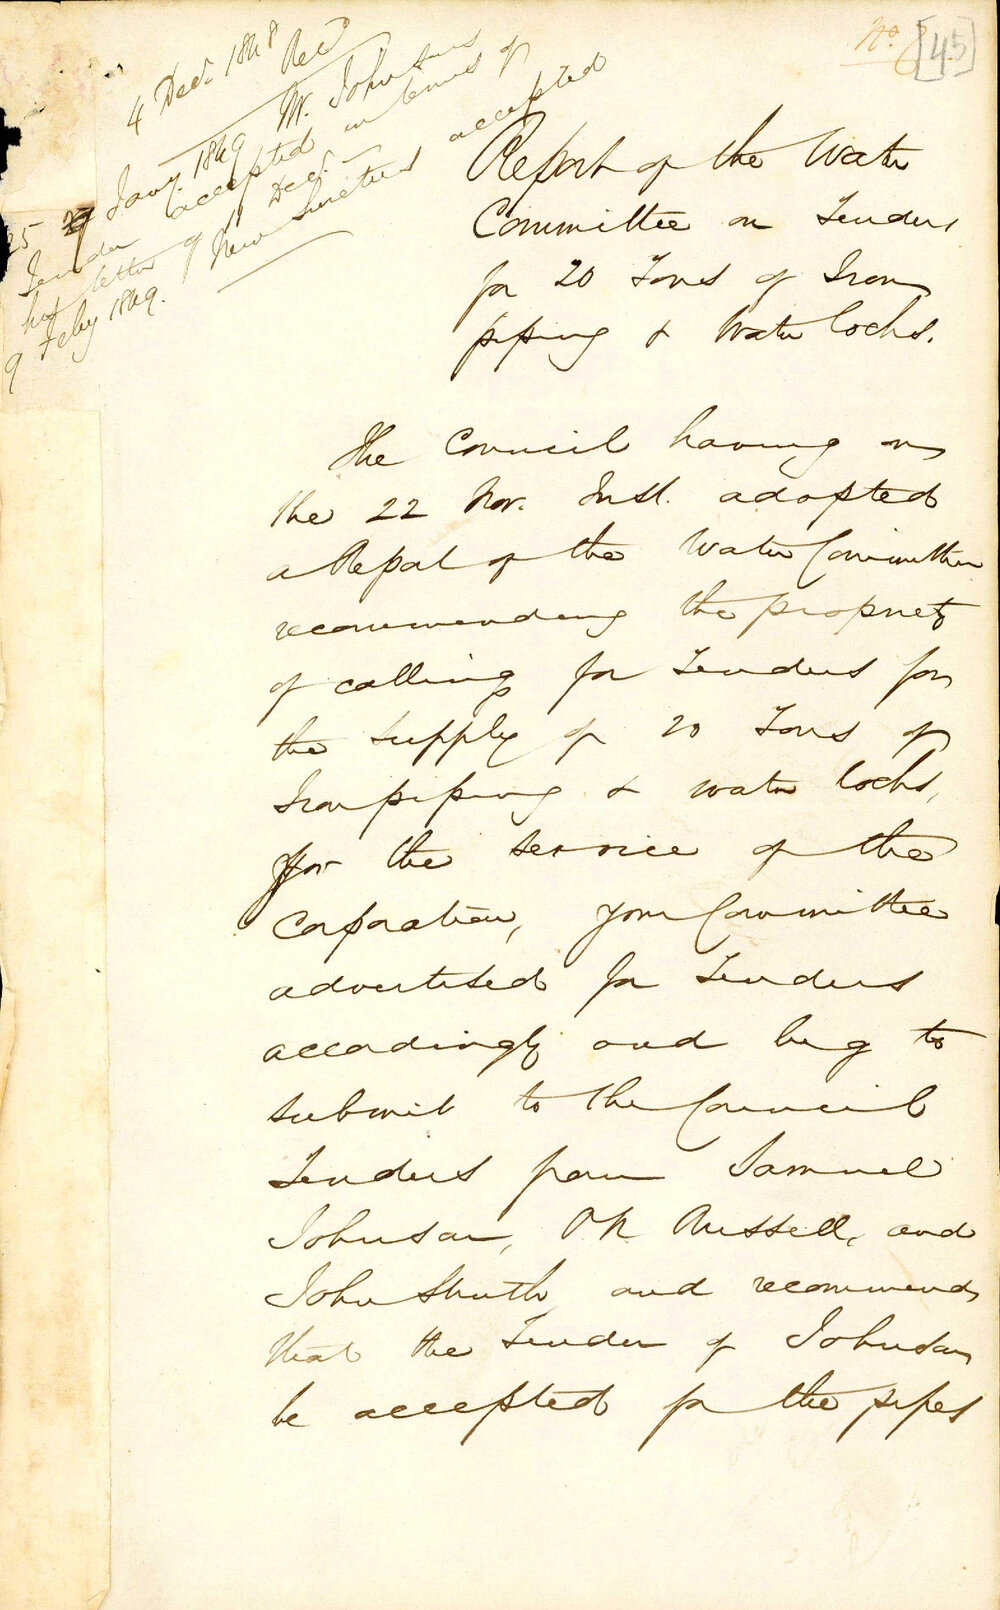 No. [45]
4 Decr 1848 Recd
25 Jany. 1849 Mr. Johnsons
Tender accepted in terms of
his letter of 11 Decr.
9 Feby 1849. New Sureties accepted
Report of the Water
Committee on Tenders
for 20 Tons of Iron
piping & Water Cocks.
The Council having on
the 22 Nov. Inst. adopted
a Repot of the Water Committee
recommending the propriety
of calling for Tenders for
the supply of 20 Tons of
Iron piping & water Cocks,
for the service of the
Corporation, your Committee
advertised for Tenders
accordingly and beg to
submit to the Council
Tenders from Samuel
Johnson, Russell, and
John Struth, and recommend
that the Tender of Johnson
be accepted for the pipes